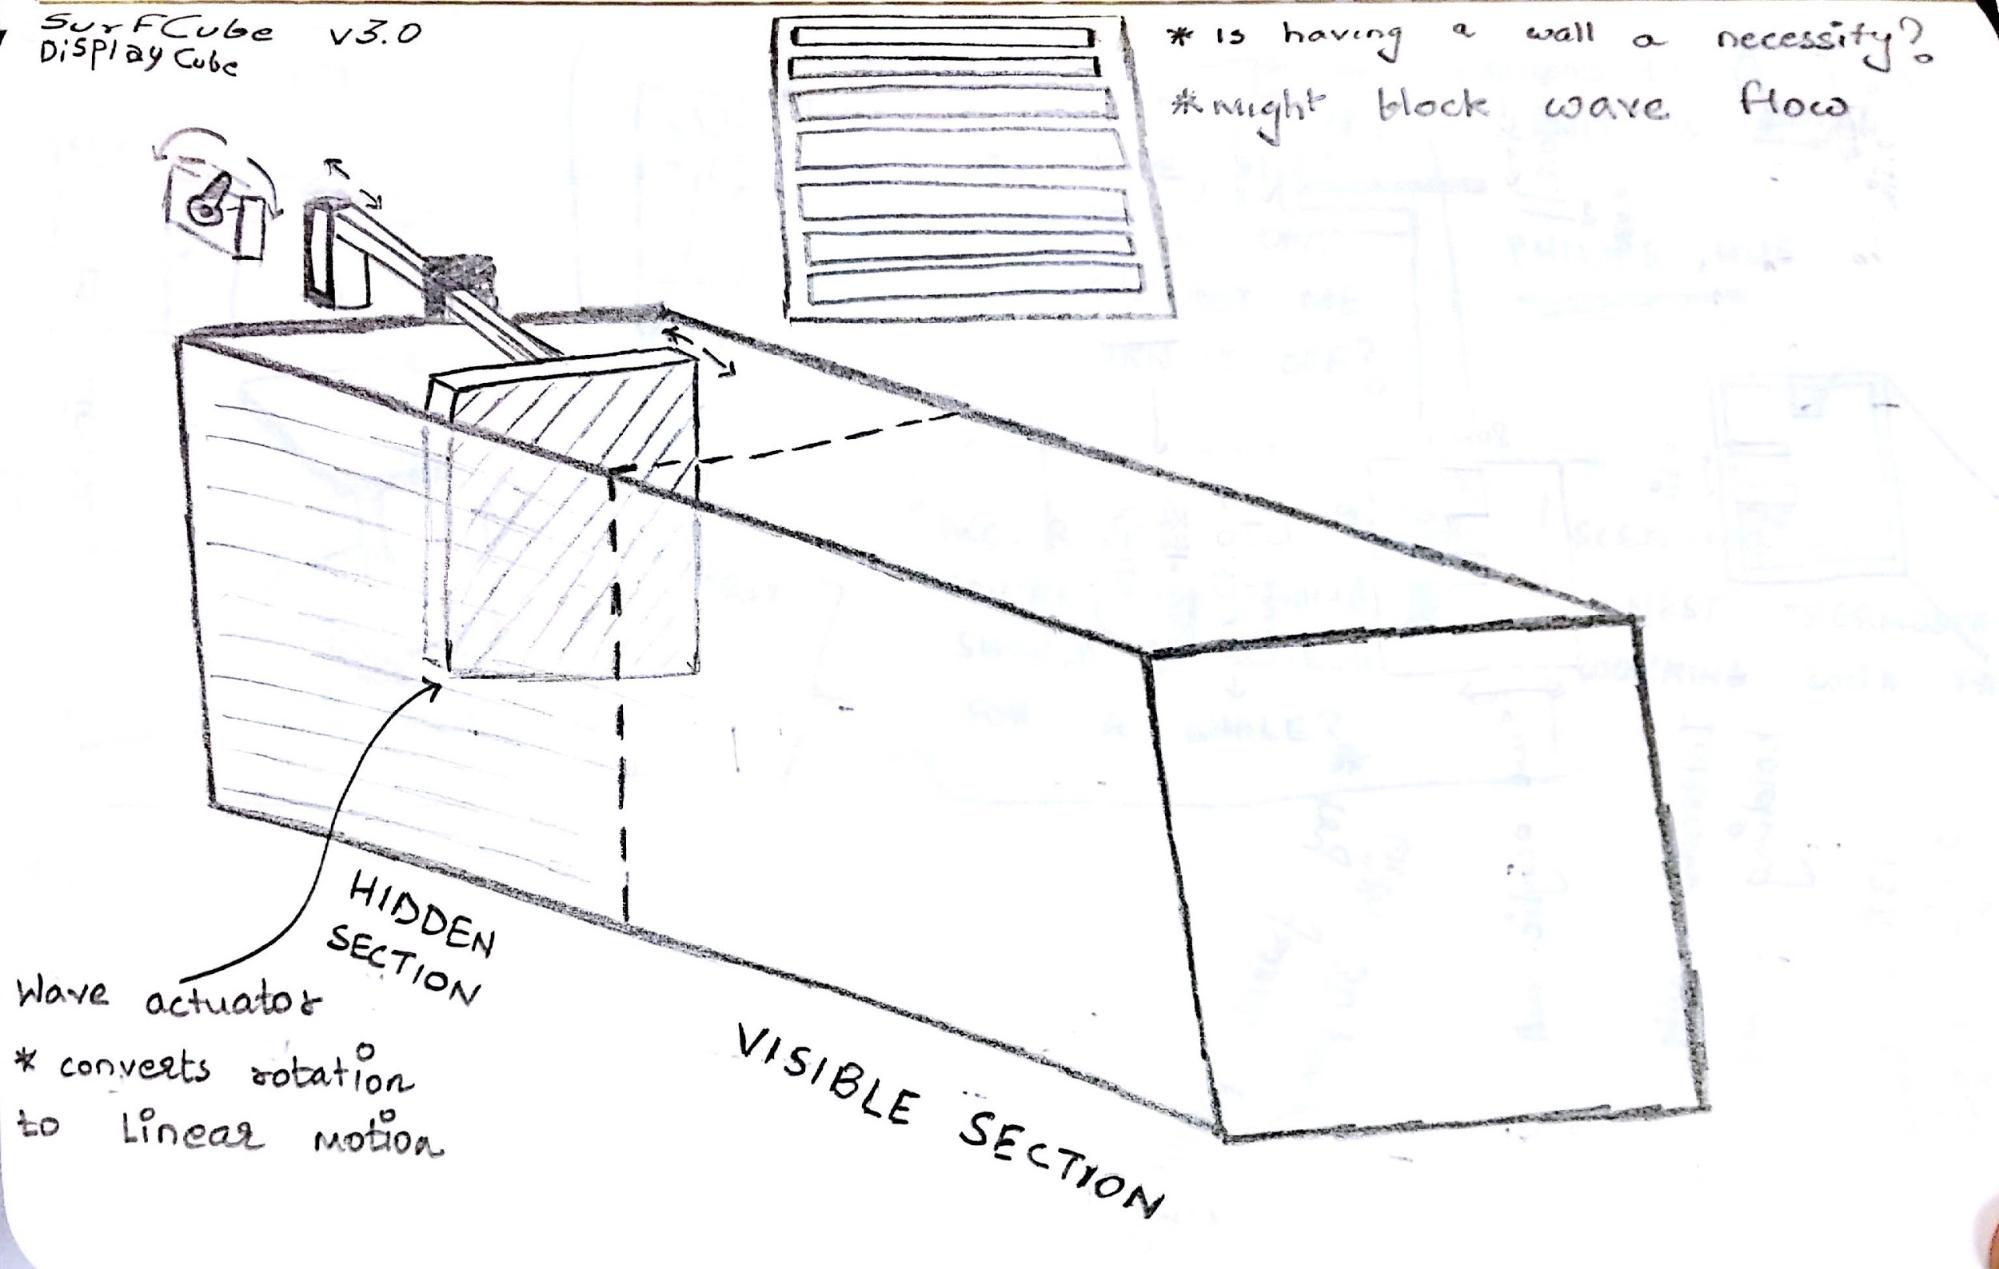 SurFCube v3.0
DiSplay Cube
* is having a wall a necessity?
* might block wave flow
HIDDEN
SECTION
Wave actuator
* converts rotation
to Linear motion
VISIBLE SECTION